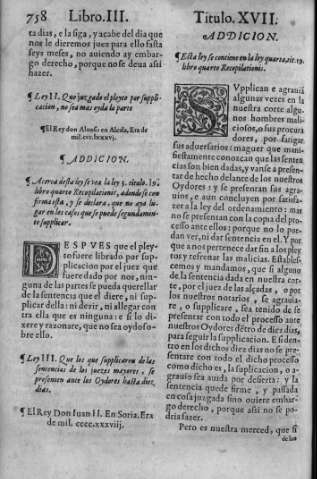 758 Libro.III.
ta dias, e la siga, y acabe del dia que
nos le dieremos juez para ello fasta
seys meses, no auiendo ay embar-
go derecho, porque no se deua assi
hazer.
¶ Ley II. Que juzgado el pleyto por suppli-
cacion, no sea mas oyda la parte
¶ El Rey don Alonso en Alcala, Era de
mil. ccc. lxxxvj.
¶ ADDICION.
¶ Acerca desta ley se vea la ley 5. titulo. 19.
libro quarto Recopilationis, adonde se con
firma esta, y se declara, que no aya lu-
gar en los casos que se puede segundamen-
te supplicar.
DESPVES que el pley-
to fuere librado por sup-
plicacion por el juez que
fuere dado por nos, nin-
guna de las partes se pueda querellar
de la sentencia que el diere, ni sup-
plicar della: ni dezir, ni allegar con
tra ella que es ninguna: e si lo di-
xere y razonare, que no sea oydo so-
bre ello.
¶ Ley III. Que los que supplicaren de las
sentencias de los juezes mayores, se
presenten ante los Oydores hasta diez
dias.
¶ El Rey Don Juan II. En Soria. Era
de mil. cccc. xxxviij.
Titulo. XVII.
ADDICION.
¶ Esta ley se contiene en la ley quarta, tit. 19.
libro quarto Recopilationis.
SVpplican e agrauiã
algunas vezes en la
nuestra corte algu-
nos hombres mali-
ciosos, o sus procura
dores, por fatigar
sus aduersarios: maguer que mani-
fiestamente conozcan que las senten
cias son bien dadas, y vanse a presen-
tar de hecho delante de los nuestros
Oydores: y se presentan sus agra-
uios, e aun concluyen por satisfa-
zer a la ley del ordenamiento: mas
no se presentan con la copia del pro-
cesso ante ellos: porque no lo pue-
dan ver, ni dar sentencia en el. Y por
que a nos pertenece dar fin a los pley
tos y refrenar las malicias. Establef-
cemos y mandamos, que si alguno
de la sentencia dada en nuestra cor-
te, por el juez de las alçadas, o por
los nuestros notarios, se agrauia-
re, o supplicare, sea tenido de se
presentar con todo el processo ante
nuestros Oydores dẽtro de diez dias,
para seguir la supplicacion. E si den-
tro en los dichos diez dias no se pre-
sentare con todo el dicho processo
como dicho es, la suplicacion, o a-
grauio sea auida por desierta: y la
sentencia quede firme, y passada
en cosa juzgada sino ouiere embar-
go derecho, porque assi no se po-
dria fazer.
Pero es nuestra merced, que si